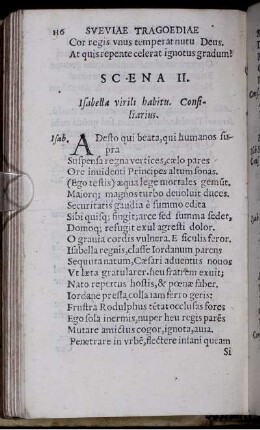 116 SVEVIAE TRAGOEDIAE
Cor regis vnus temperat nutu Deus.
At quis repente celerat ignotus gradum?
SCENA II.
Isabella virili habitu. Consi-
liarius.
Isab. ADesto qui beata, qui humanos su-
pra
Suspensa regna vertices, cælo pares
Ore inuidenti Principes altum sonas.
(Ego testis) æqua lege mortales gemūt.
Maiorq; magnos turbo deuoluit duces.
Securitatis gaudia è summo edita
Sibi quisq; fingit; arce sed summa sedet,
Domoq; refugit exul agresti dolor.
O grauia cordis vulnera. E siculis feror.
Isabella regnis, classe Iordanum parens
Sequuta natum, Cæsari aduentui nouos
Vt læta gratularer. heu fratrem exuit;
Nato repertus hostis, & pœnæ faber.
Iordane presta, colla iam ferro geris:
Frustra Rodulphus tētat occlusas fores
Ego sola inermis, nuper heu regis parēs
Mutare amictus cogor, ignota, auia.
Penetrare in vrbē, flectere insani queam
Si